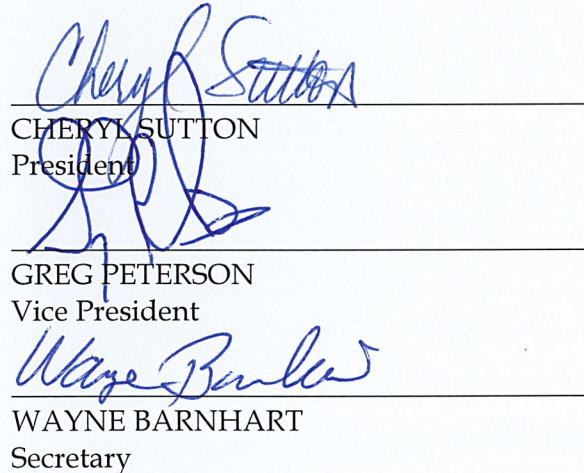 Cheryl Sutton
CHERYL SUTTON
President
GREG PETERSON
Vice President
Wayne Barnhart
WAYNE BARNHART
Secretary